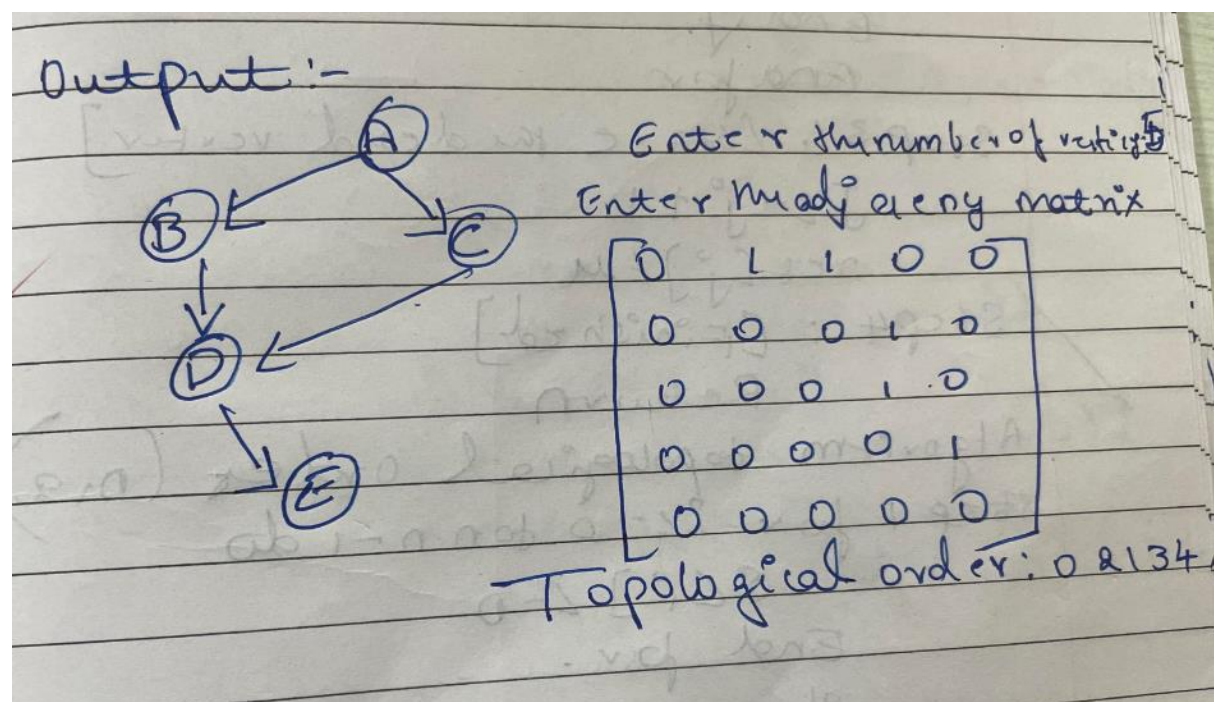 Output :-
A
B
C
D
E
Enter the number of vertices 5
Enter the adjaceny matrix
0 1 1 0 0
0 0 0 1 0
0 0 0 1 0
0 0 0 0 1
0 0 0 0 0
Topological order: 0 2 1 3 4